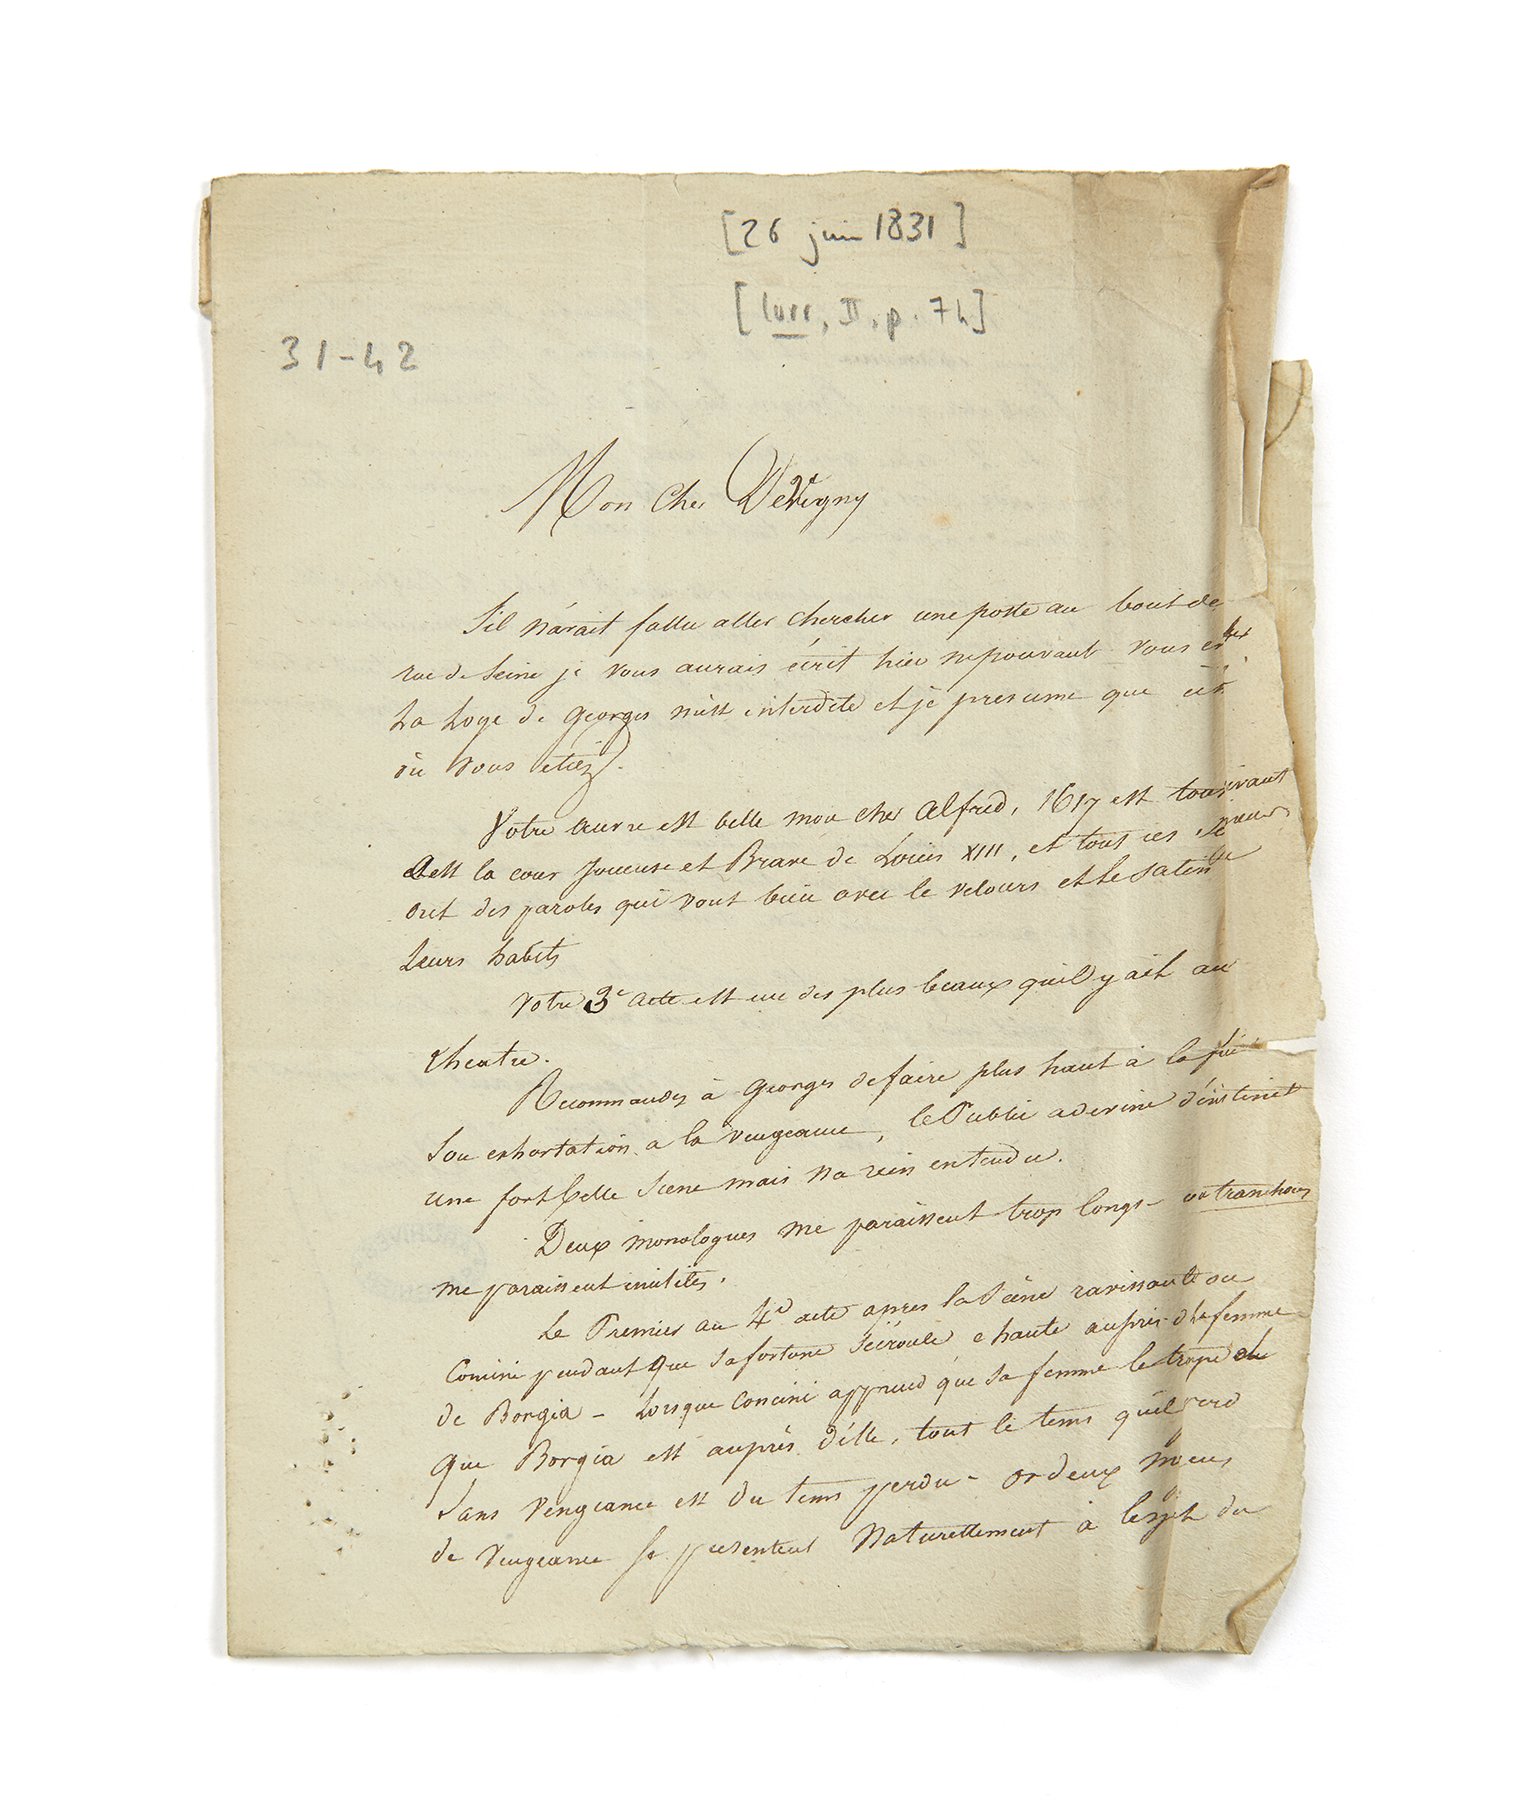 [26 juin 1831]
[Corr, II, p. 74]
31-42
Mon cher Devigny
S'il n'avait fallu aller chercher une poste au bout de
rue de Seine je vous aurais écrit hier ne pouvant vous
La Loge de Georges m'est interdite et je presume que
où vous etiez.
Votre œuvre est belle mon cher Alfred, 1617 est tout vivant
c'est la cour Joueuse et Brave de Louis XIII, et tous ces
ont des paroles qui vont bien avec le velours et le satin
Leurs habits
Votre 3e acte est un des plus beaux quil y ait au
theatre.
Recommandez à Georges de faire plus haut à la fin
Son exhortation a la vengeance, le Public a deviné d'instinct
une fort belle Scene mais na rien entendu.
Deux monologues me paraissent trop longs - ou tranchons
me paraissent inutiles.
Le Premier au 4e acte apres la Scène ravissante ou
Concini pendant que sa fortune S'écroule chante auprès d la femme
de Borgia - Lorsque Concini apprend que sa femme le trompe et
que Borgia est auprès d'elle, tout le tems qu'il perd
Sans Vengeance est du tems perdu - or deux moyens
de vengeance se presentent Naturellement à lesprit du